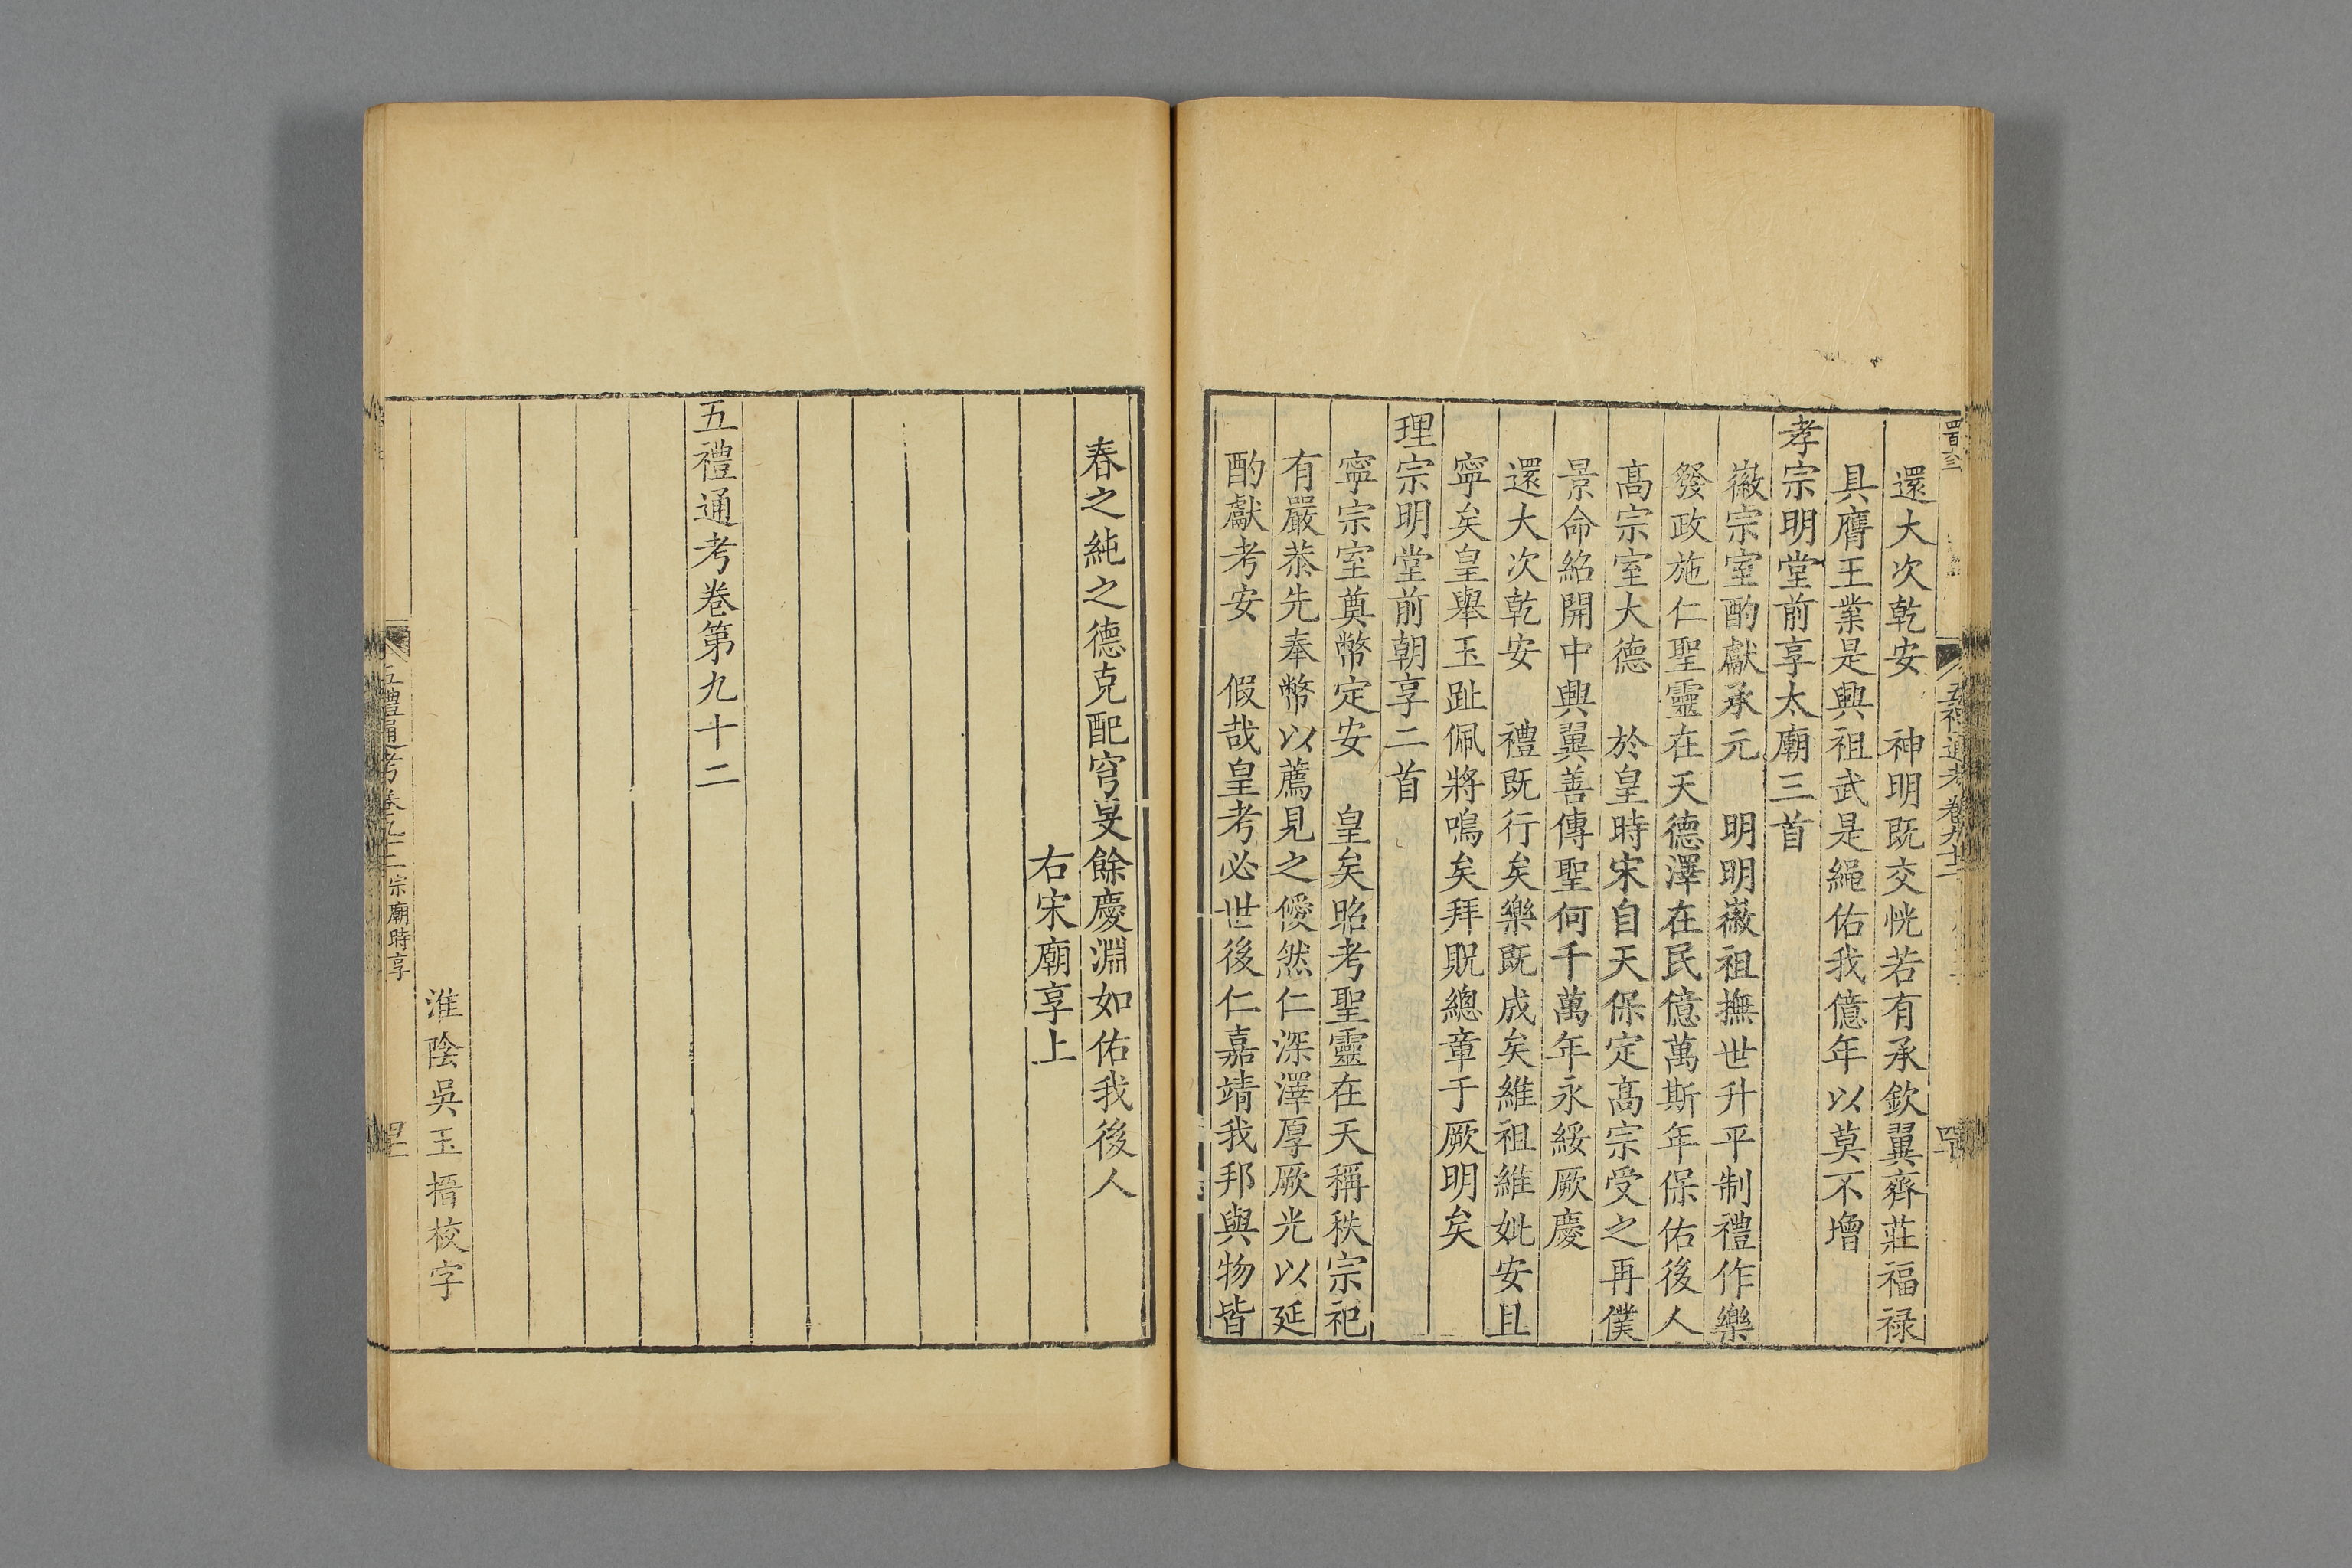 五禮通考卷九十二
還大次乾安　神明既交恍若有承欽翼齊莊福祿
具膺王業是興祖武是繩佑我億年以莫不增
孝宗明堂前享太廟三首
徽宗室酌獻承元　明明徽祖撫世升平制禮作樂
發政施仁聖靈在天德澤在民億萬斯年保佑後人
高宗室大德　於皇時宋自天保定高宗受之再僕
景命紹開中興翼善傳聖何千萬年永綏厥慶
還大次乾安　禮既行矣樂既成矣維祖維妣安且
寧矣皇舉玉趾佩將鳴矣拜貺總章于厥明矣
理宗明堂前朝享二首
寧宗室奠幣定安　皇矣昭考聖靈在天稱秩宗祀
有嚴恭先奉幣以薦見之僾然仁深澤厚厥光以延
酌獻考安　假哉皇考必世後仁嘉靖我邦與物皆
春之純之德克配穹旻餘慶淵如佑我後人
右宋廟享上
五禮通考卷第九十二
淮陰吳玉搢校字
五禮通考卷九十二 宗廟時享